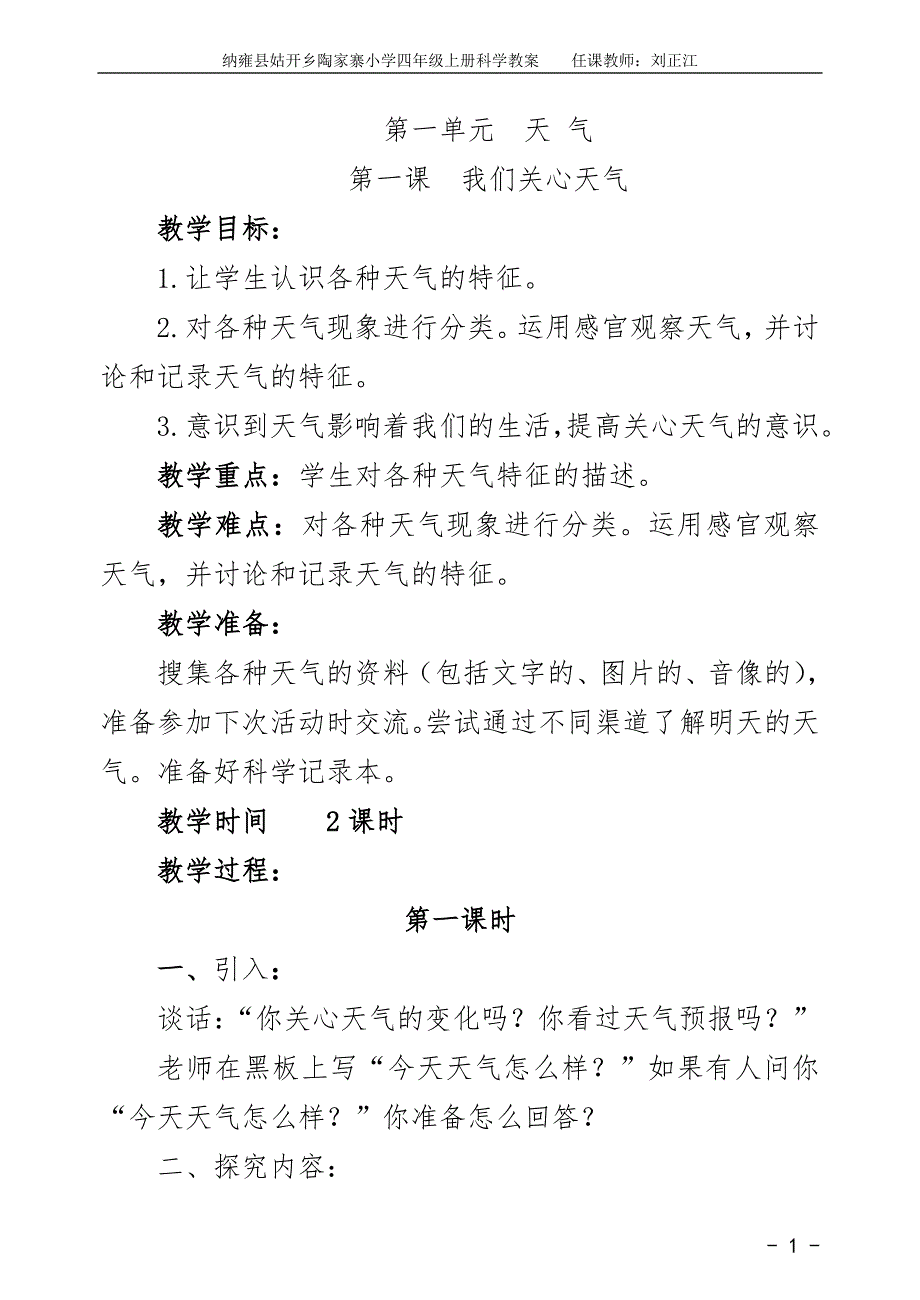 纳雍县姑开乡陶家寨小学四年级上册科学教案 任课教师：刘正江
第一单元 天 气
第一课 我们关心天气
教学目标：
1.让学生认识各种天气的特征。
2.对各种天气现象进行分类。运用感官观察天气，并讨
论和记录天气的特征。
3.意识到天气影响着我们的生活，提高关心天气的意识。
教学重点：学生对各种天气特征的描述。
教学难点：对各种天气现象进行分类。运用感官观察
天气，并讨论和记录天气的特征。
教学准备：
搜集各种天气的资料（包括文字的、图片的、音像的），
准备参加下次活动时交流。尝试通过不同渠道了解明天的天
气。准备好科学记录本。
教学时间 2课时
教学过程：
第一课时
一、引入：
谈话：“你关心天气的变化吗？你看过天气预报吗？”
老师在黑板上写“今天天气怎么样？”如果有人问你
“今天天气怎么样？”你准备怎么回答？
二、探究内容：
- 1 -